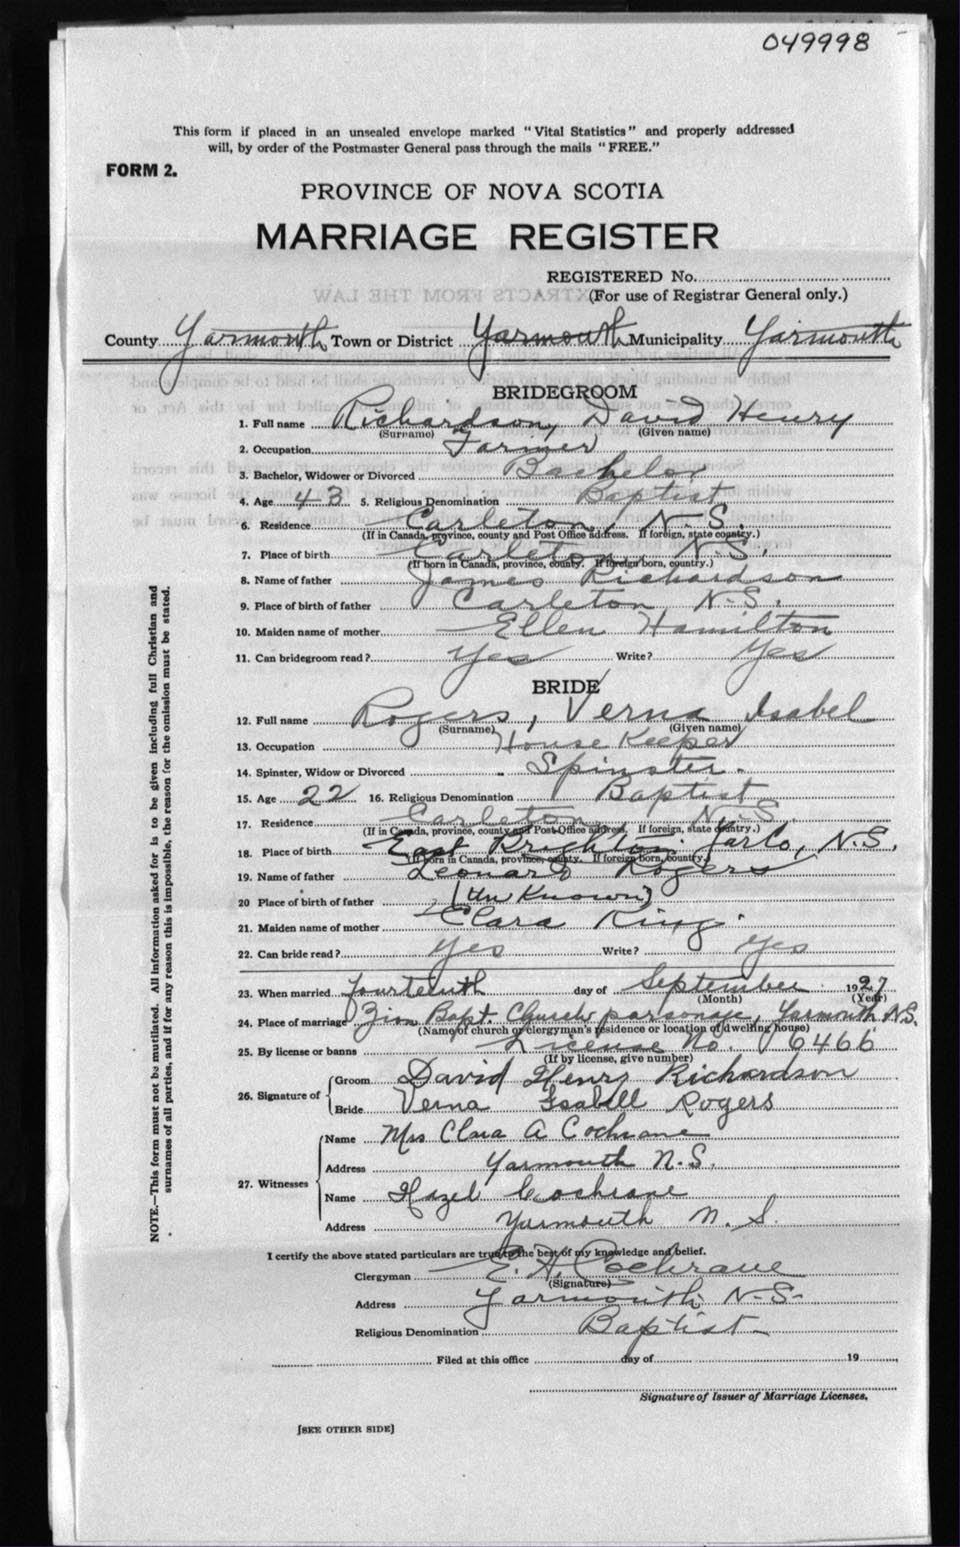 049998
This form if placed in an unsealed envelope marked "Vital Statistics" and properly addressed
will, by order of the Postmaster General pass through the mails "FREE."
FORM 2.
PROVINCE OF NOVA SCOTIA
MARRIAGE REGISTER
REGISTERED No.
(For use of Registrar General only.)
County Yarmouth Town or District Yarmouth Municipality Yarmouth
BRIDEGROOM
1. Full name Richardson, David Henry
(Surname) (Given name)
2. Occupation Farmer
3. Bachelor, Widower or Divorced Bachelor
4. Age 43 5. Religious Denomination Baptist
6. Residence Carleton, N.S.
(If in Canada, province, county and Post Office address. If foreign, state country.)
7. Place of birth Carleton N.S.
(If born in Canada, province, county. If foreign born, country.)
8. Name of father James Richardson
9. Place of birth of father Carleton N.S.
10. Maiden name of mother Ellen Hamilton
11. Can bridegroom read? Yes Write? Yes
BRIDE
12. Full name Rogers, Verna Isabel
(Surname) (Given name)
13. Occupation House Keeper
14. Spinster, Widow or Divorced Spinster.
15. Age 22 16. Religious Denomination Baptist
17. Residence Carleton, N.S.
(If in Canada, province, county and Post Office address. If foreign, state country.)
18. Place of birth East Brighton, Yar Co, N.S.
(If born in Canada, province, county. If foreign born, country.)
19. Name of father Leonard Rogers
20 Place of birth of father (Un Known)
21. Maiden name of mother Clara King.
22. Can bride read? Yes Write? Yes
23. When married Fourteenth day of September 1927
(Month) (Year)
24. Place of marriage Zion Bapt. Church parsonage, Yarmouth N.S.
(Name of church or clergyman's residence or location of dwelling house)
25. By license or banns License No. 6466
(If by license, give number)
26. Signature of
Groom David Henry Richardson
Bride Verna Isabell Rogers
27. Witnesses
Name Mrs Clara A Cochrane
Address Yarmouth N.S.
Name Hazel Cochrane
Address Yarmouth N.S.
I certify the above stated particulars are true to the best of my knowledge and belief.
Clergyman E. A. Cochrane
(Signature)
Address Yarmouth N-S-
Religious Denomination Baptist
Filed at this office day of 19
Signature of Issuer of Marriage Licenses.
[SEE OTHER SIDE]
NOTE.—This form must not be mutilated. All information asked for is to be given including full Christian and
surnames of all parties, and if for any reason this is impossible, the reason for the omission must be stated.